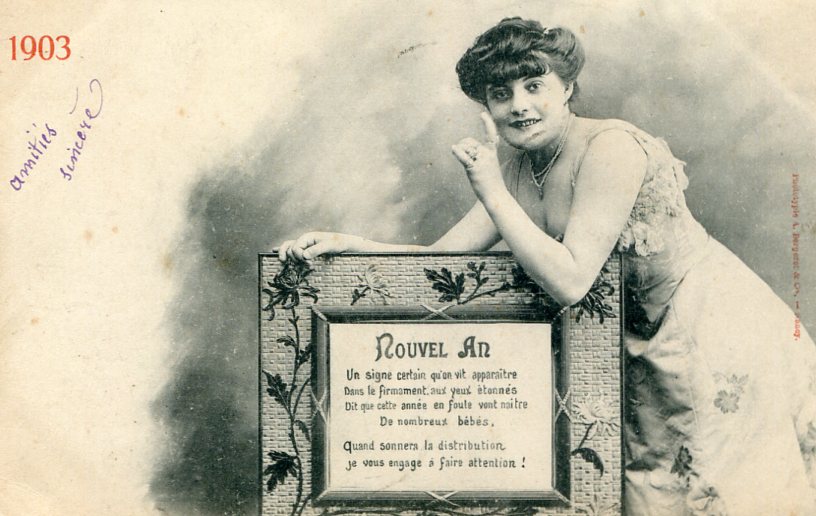 1903
amitiés
sincère
NOUVEL AN
Un signe certain qu'on vit apparaître
Dans le firmament, aux yeux ètonnés
Dit que cette année en foule vont naître
De nombreux bébés.
Quand sonnera la distribution
je vous engage à faire attention !
Phototypie A. Bergeret & Cie. — Nancy.